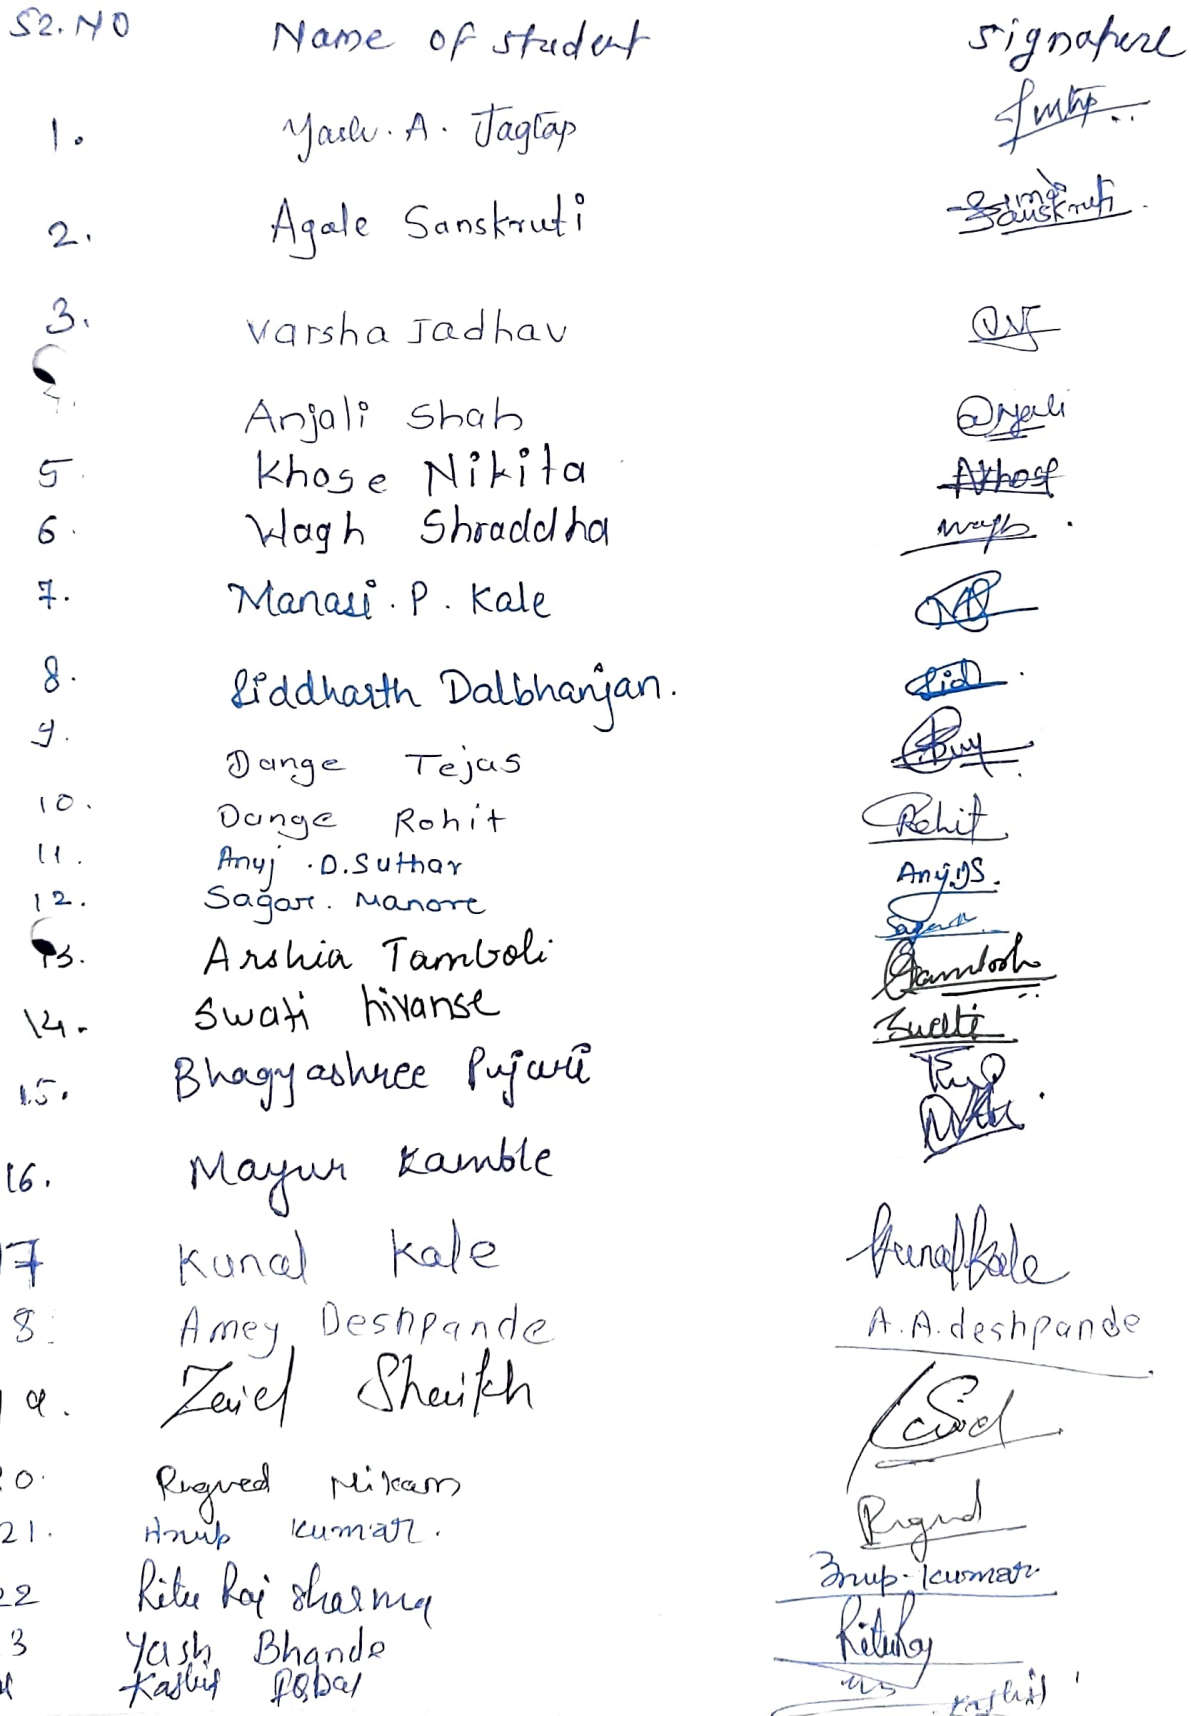 Sr. NO Name of student Signature
1. Yash. A. Jagtap
2. Agale Sanskruti Sanskruti
3. Varsha Jadhav
4. Anjali Shah @njali
5. Khose Nikita NKhose
6. Wagh Shraddha Wagh
7. Manasi. P. Kale
8. Siddharth Dalbhanjan. Sid
9. Dange Tejas
10. Dange Rohit Rohit
11. Anuj .D. Suthar Anuj DS.
12. Sagar. Manore Sagar
13. Arshia Tamboli
14. Swati hivanse Swati
15. Bhagyashree Pujari
16. Mayur Kamble
17 Kunal Kale Kunal Kale
8. Amey Deshpande A.A.deshpande
19. Zaid Shaikh Zaid
0. Rugved Nikam Rugved
21. Anup Kumar. Anup. Kumar
22 Ritu Raj Sharma Rituraj
3 Yash Bhande
Kashif Iqbal Kashif